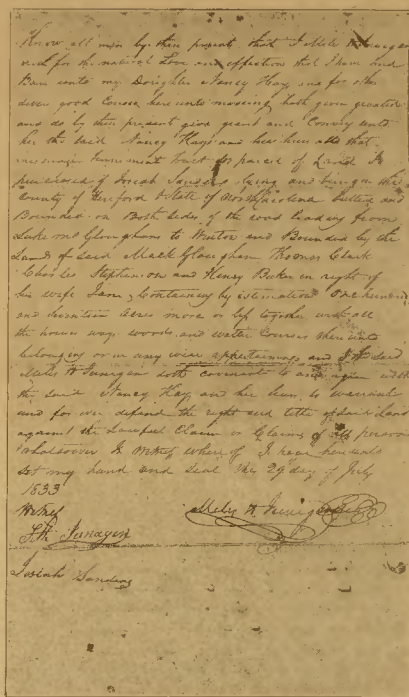 Know all men by these present that I Miles H Jernagan
and for the natural Love and affection that I have and
Bare unto my Daughter Nancy Hays and for other
divers good Causes here unto moving hath given granted
and do by these present give grant and Convey unto
her the said Nancy Hays and her heirs all that
messuage tenement tract or parcel of Land I
purchased of Josiah Sanders lying and being in the
County of Hertford & State of North Carolina butted and
Bounded on Both sides of the road leading from
Luke McGloughans to Winton and Bounded by the
Lands of said MackGloughan Thomas Clark
Charles Stephenson and Henry Baker in right of
his wife Containing by estimation One hundred
and seventeen Acres more or less together with all
the houses ways woods and water Courses there unto
belonging or in any wise appertaining and I the said
Miles H Jernagan doth covenant to and with
the said Nancy Hay and her heirs to warrant
and for ever defend the right and title of said land
against the Lawful Claim or Claims of all persons
whatsoever In Witness where of I have hereunto
set my hand and seal the 29 day of July
1833
Witness
Miles H Jernigan
Jernagan
Josiah Sanders